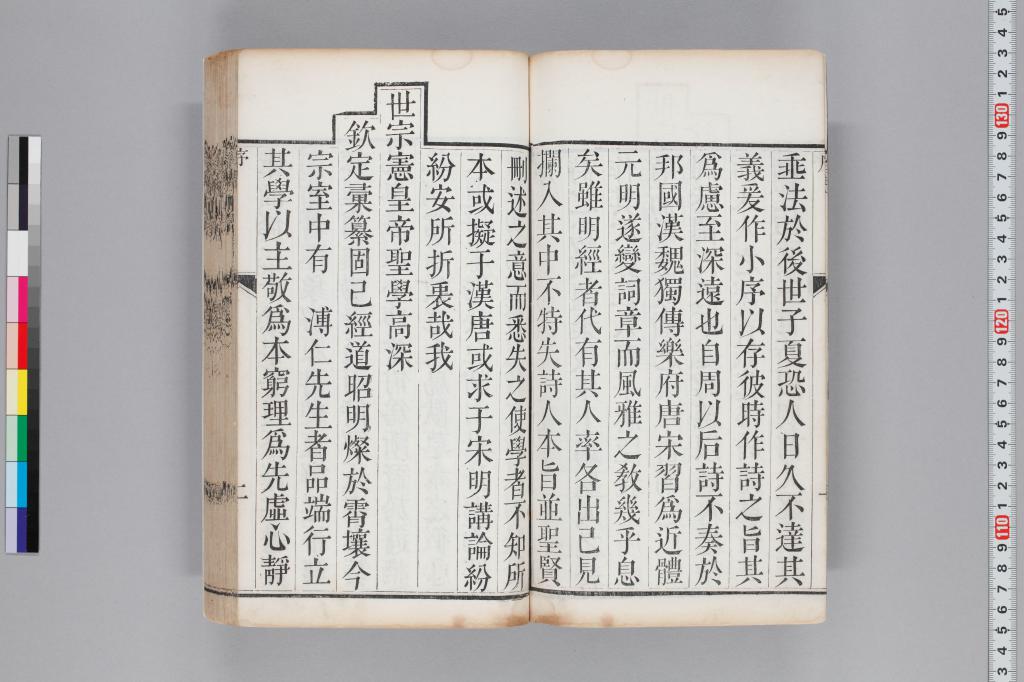 垂法於後世子夏恐人日久不達其
義爰作小序以存彼時作詩之旨其
爲慮至深遠也自周以后詩不奏於
邦國漢魏獨傳樂府唐宋習爲近體
元明遂變詞章而風雅之敎幾乎息
矣雖明經者代有其人率各出己見
攔入其中不特失詩人本旨並聖賢
刪述之意而悉失之使學者不知所
本或擬于漢唐或求于宋明講論紛
紛安所折衷哉我
世宗憲皇帝聖學高深
欽定彙纂固己經道昭明燦於霄壤今
宗室中有 溥仁先生者品端行立
其學以主敬爲本窮理爲先虛心靜
序
二